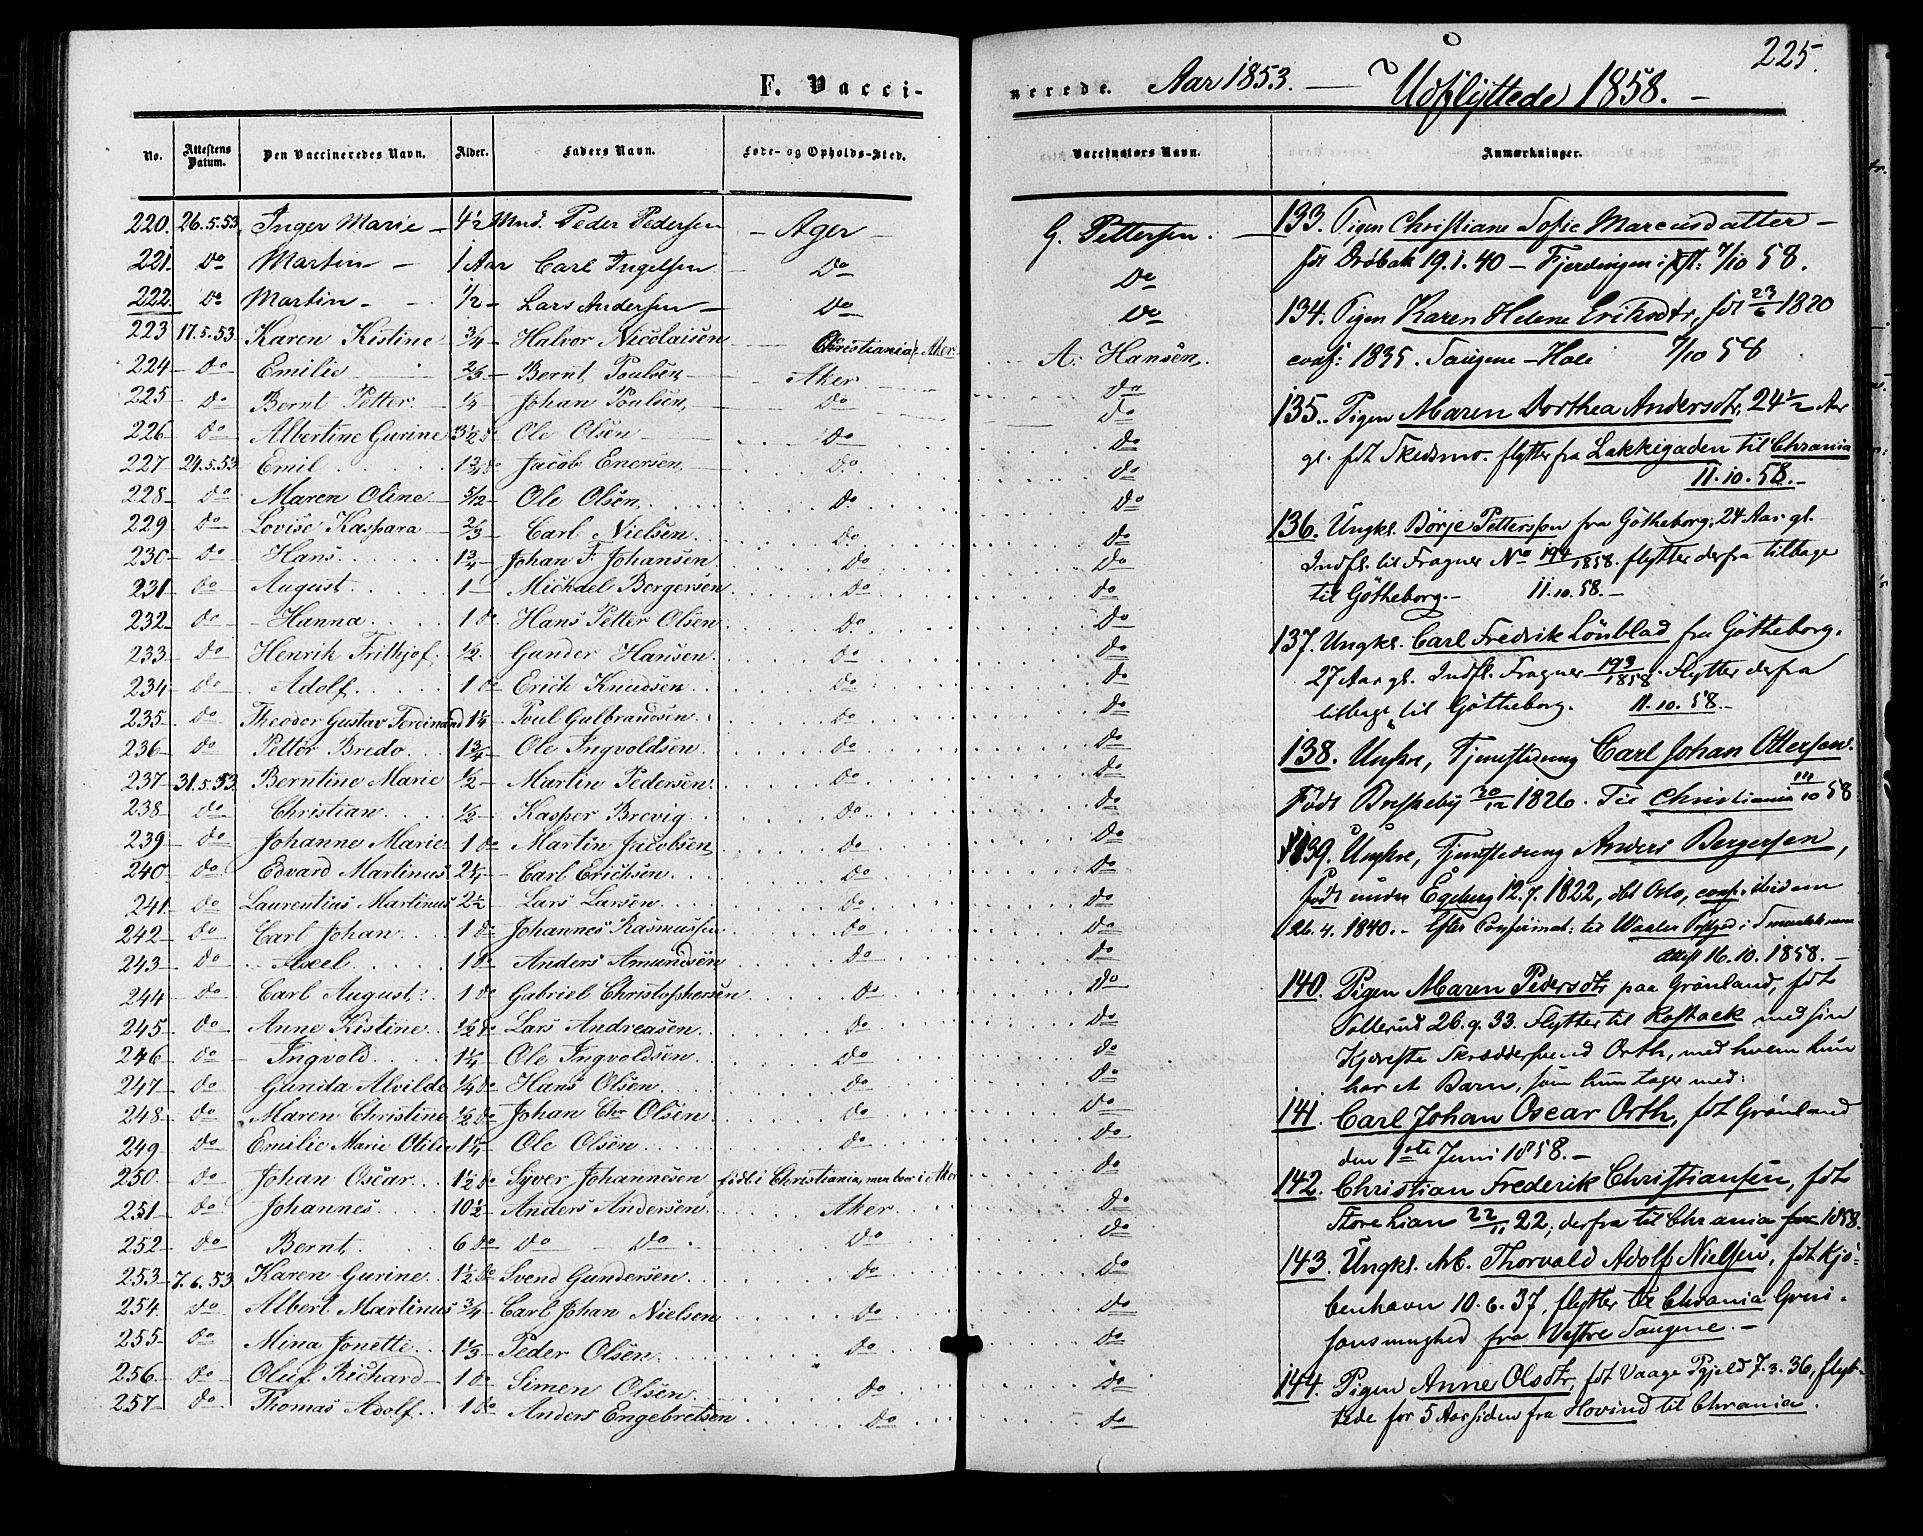 225.
F. Vacci-
nerede. Aar 1853. — Udflyttede 1858. —
No. Attestens Datum. Den Vaccineredes Navn. Alder. Faders Navn. Føde- og Opholds-Sted. Vaccinators Navn. Anmærkninger.
220. 26.5.53 Inger Marie 4½ Mnd. Peder Pedersen Ager G. Pettersen.
221 Do Martin 1 Aar Carl Ingelsen Do Do
222 Do Martin ½ Lars Andersen Do Do
223 17.5.53 Karen Kistine ¾ Halvor Nicolaisen Christiania Aker A. Hansen.
224 Do Emilie ⅔ Bernt Poulsen Aker Do
225 Do Bernt Petter Johan Poulsen Do Do
226 Do Albertine Gurine 3½ do Ole Olsen Do Do
227 24.5.53 Emil Jacob Enersen Do Do
228 Do Maren Oline 5/12 Ole Olsen Do Do
229 Do Lovise Kaspara ⅔ Carl Nielsen Do Do
230 Do Hans 1¾ Johan F. Johansen Do Do
231 Do August 1 Michael Borgersen Do Do
232 Do Hanna 1 do Hans Petter Olsen Do Do
233 Do Henrik Frithjof ½ Gunder Hansen Do Do
234 Do Adolf 1 do Erich Knudsen Do Do
235 Do Theodor Gustav Ferdinand 1¼ Poul Gulbrandsen Do Do
236 Do Petter Bredo 1¾ Ole Ingvoldsen Do Do
237 31.5.53 Berntine Marie ½ Martin Pedersen Do Do
238 Do Christian ½ Kasper Brevig Do Do
239 Do Johanne Marie 1 do Martin Jacobsen Do Do
240 Do Edvard Martinus 2¼ Carl Erichsen Do Do
241 Do Laurentius Martinus 2½ Lars Larsen Do Do
242 Do Carl Johan 1 do Johannes Rasmussen Do Do
243 Do Axel 1 do Anders Amundsen Do Do
244 Do Carl August 1 do Gabriel Christophersen Do Do
245 Do Anne Kistine ½ do Lars Andreasen Do Do
246 Do Ingvold 1¼ Ole Ingvoldsen Do Do
247 Do Gunda Alvilde ¼ do Hans Olsen Do Do
248 Do Maren Christine ½ do Johan Chr Olsen Do Do
249 Do Emilie Marie Otilie 1¼ Ole Olsen Do Do
250 Do Johan Oscar 1½ do Syver Johannesen født i Christiania, men boer i Aker Do
251 Do Johannes 10½ Anders Andersen Aker Do
252 Do Bernt 6 do Do Do Do Do
253 7.6.53 Karen Gurine 1½ do Svend Gundersen Do Do
254 Do Albert Martinus ¾ Carl Johan Nielsen Do Do
255 Do Mina Jonette 1⅓ Peder Olsen Do Do
256 Do Oluf Richard 1 do Simen Olsen Do Do
257 Do Thomas Adolf 1 do Anders Engebretsen Do Do
133. Pigen Christiane Sofie Marcusdatter —
Drøbak 19.1.40 — Fjerdingen: 7/10 58.
134. Pigen Karen Helene Eriksdtr, fdt 23/6 1820
conf: 1835. Taugene — 7/10 58
135. Pigen Maren Dorthea Andersdtr, 24½ Aar
gl. fdt Skedsmo. flytter fra Lakkegaden til Chrania
11.10.58. —
136. Ungk. Börje Pettersson fra Götheborg. 24 Aar gl.
Indfl. til Frogner No 194/1858. flytter derfra tilbage
til Götheborg. — 11.10.58. —
137. Ungk. Carl Fredrik Lönblad fra Götheborg.
27 Aar gl. Indfl. Frogner 193/1858. Flytter derfra
tilbage til Götheborg. 11.10.58. —
138. Ungkre, Tjenestedreng Carl Johan Ottersen.
Født Briskeby 30/12 1826. Til Christiania 14/10 58
139. Ungkre, Tjenestedreng Anders Bergersen,
født under Egeberg 12.7.1822, dbt Oslo, conf. ibidem
26.4.1840. — Efter Confirmat: til Waaler Prstgd i Smaalehnene
Attest 16.10.1858. —
140. Pigen Maren Pedersdtr paa Grønland, fdt
26.9.33. Flytter til Rostock med sin
Kjæreste Skræddersvend Orth, med hvem hun
har et Barn, som hun tager med:
141. Carl Johan Oscar Orth, fdt Grønland
den 9de Juni 1858. —
142. Christian Frederik Christiansen, fdt
Store Lian 22/11 22, derfra til Chrania 1858.
143. Ungk. M. Thorvald Adolf Nielsen, fdt Kjø-
benhavn 10.6.37, flytter til Chrania
fra Vestre Taugene. —
144. Pigen Anne Olsdtr, fdt Vaage Pgjeld 7.3.36, flyt-
tede for 5 Aar siden fra Hovind til Chrania.